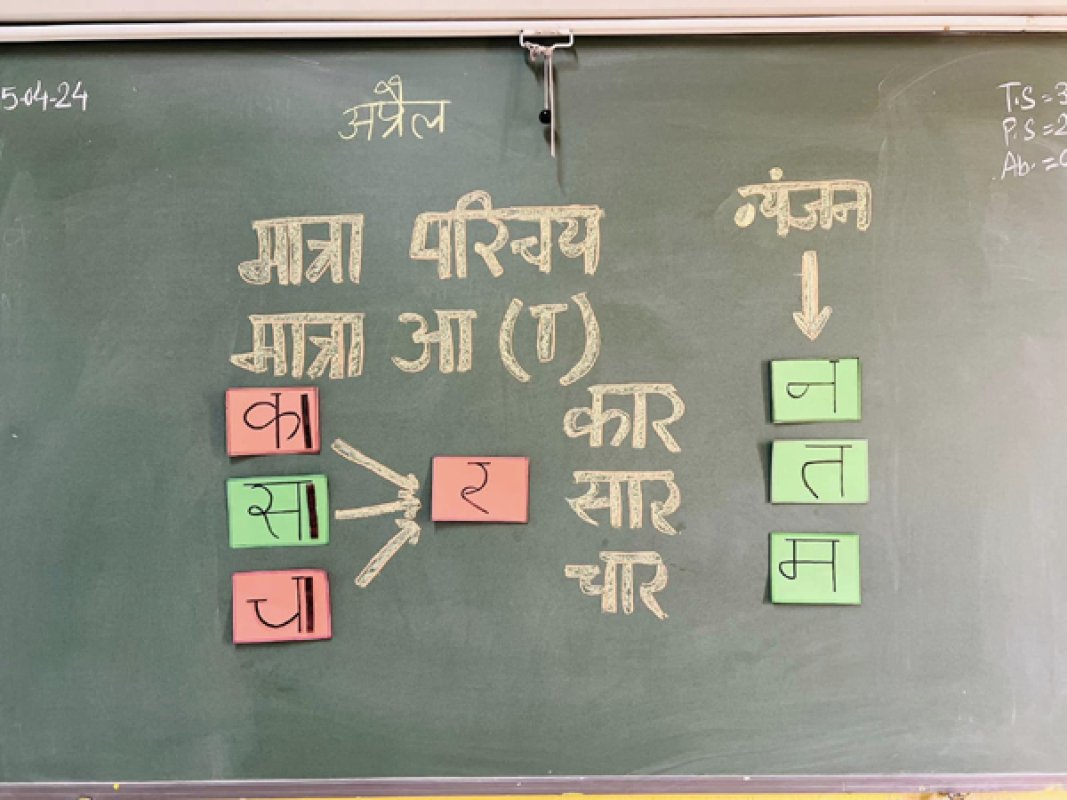 5-04-24
अप्रैल
T.S = 3
P.S = 2
Ab. =
मात्रा परिचय
व्यंजन
मात्रा आ (ा)
का
सा
चा
र
कार
सार
चार
न
त
म